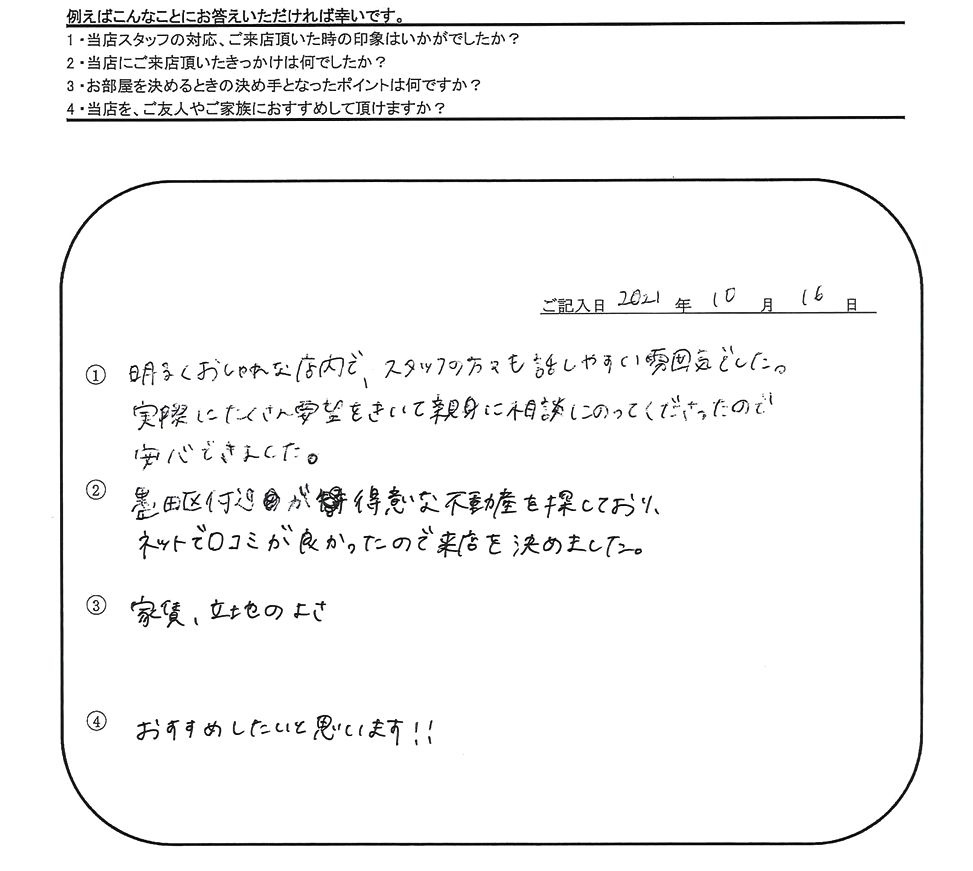 例えばこんなことにお答えいただければ幸いです。
1・当店スタッフの対応、ご来店頂いた時の印象はいかがでしたか？
2・当店にご来店頂いたきっかけは何でしたか？
3・お部屋を決めるときの決め手となったポイントは何ですか？
4・当店を、ご友人やご家族におすすめして頂けますか？
ご記入日 2021 年 10 月 16 日
① 明るくおしゃれな店内で、スタッフの方々も話しやすい雰囲気でした。
実際にたくさん要望をきいて親身に相談にのってくださったので
安心できました。
② 墨田区付近が得意な不動産を探しており、
ネットで口コミが良かったので来店を決めました。
③ 家賃、立地のよさ
④ おすすめしたいと思います!!